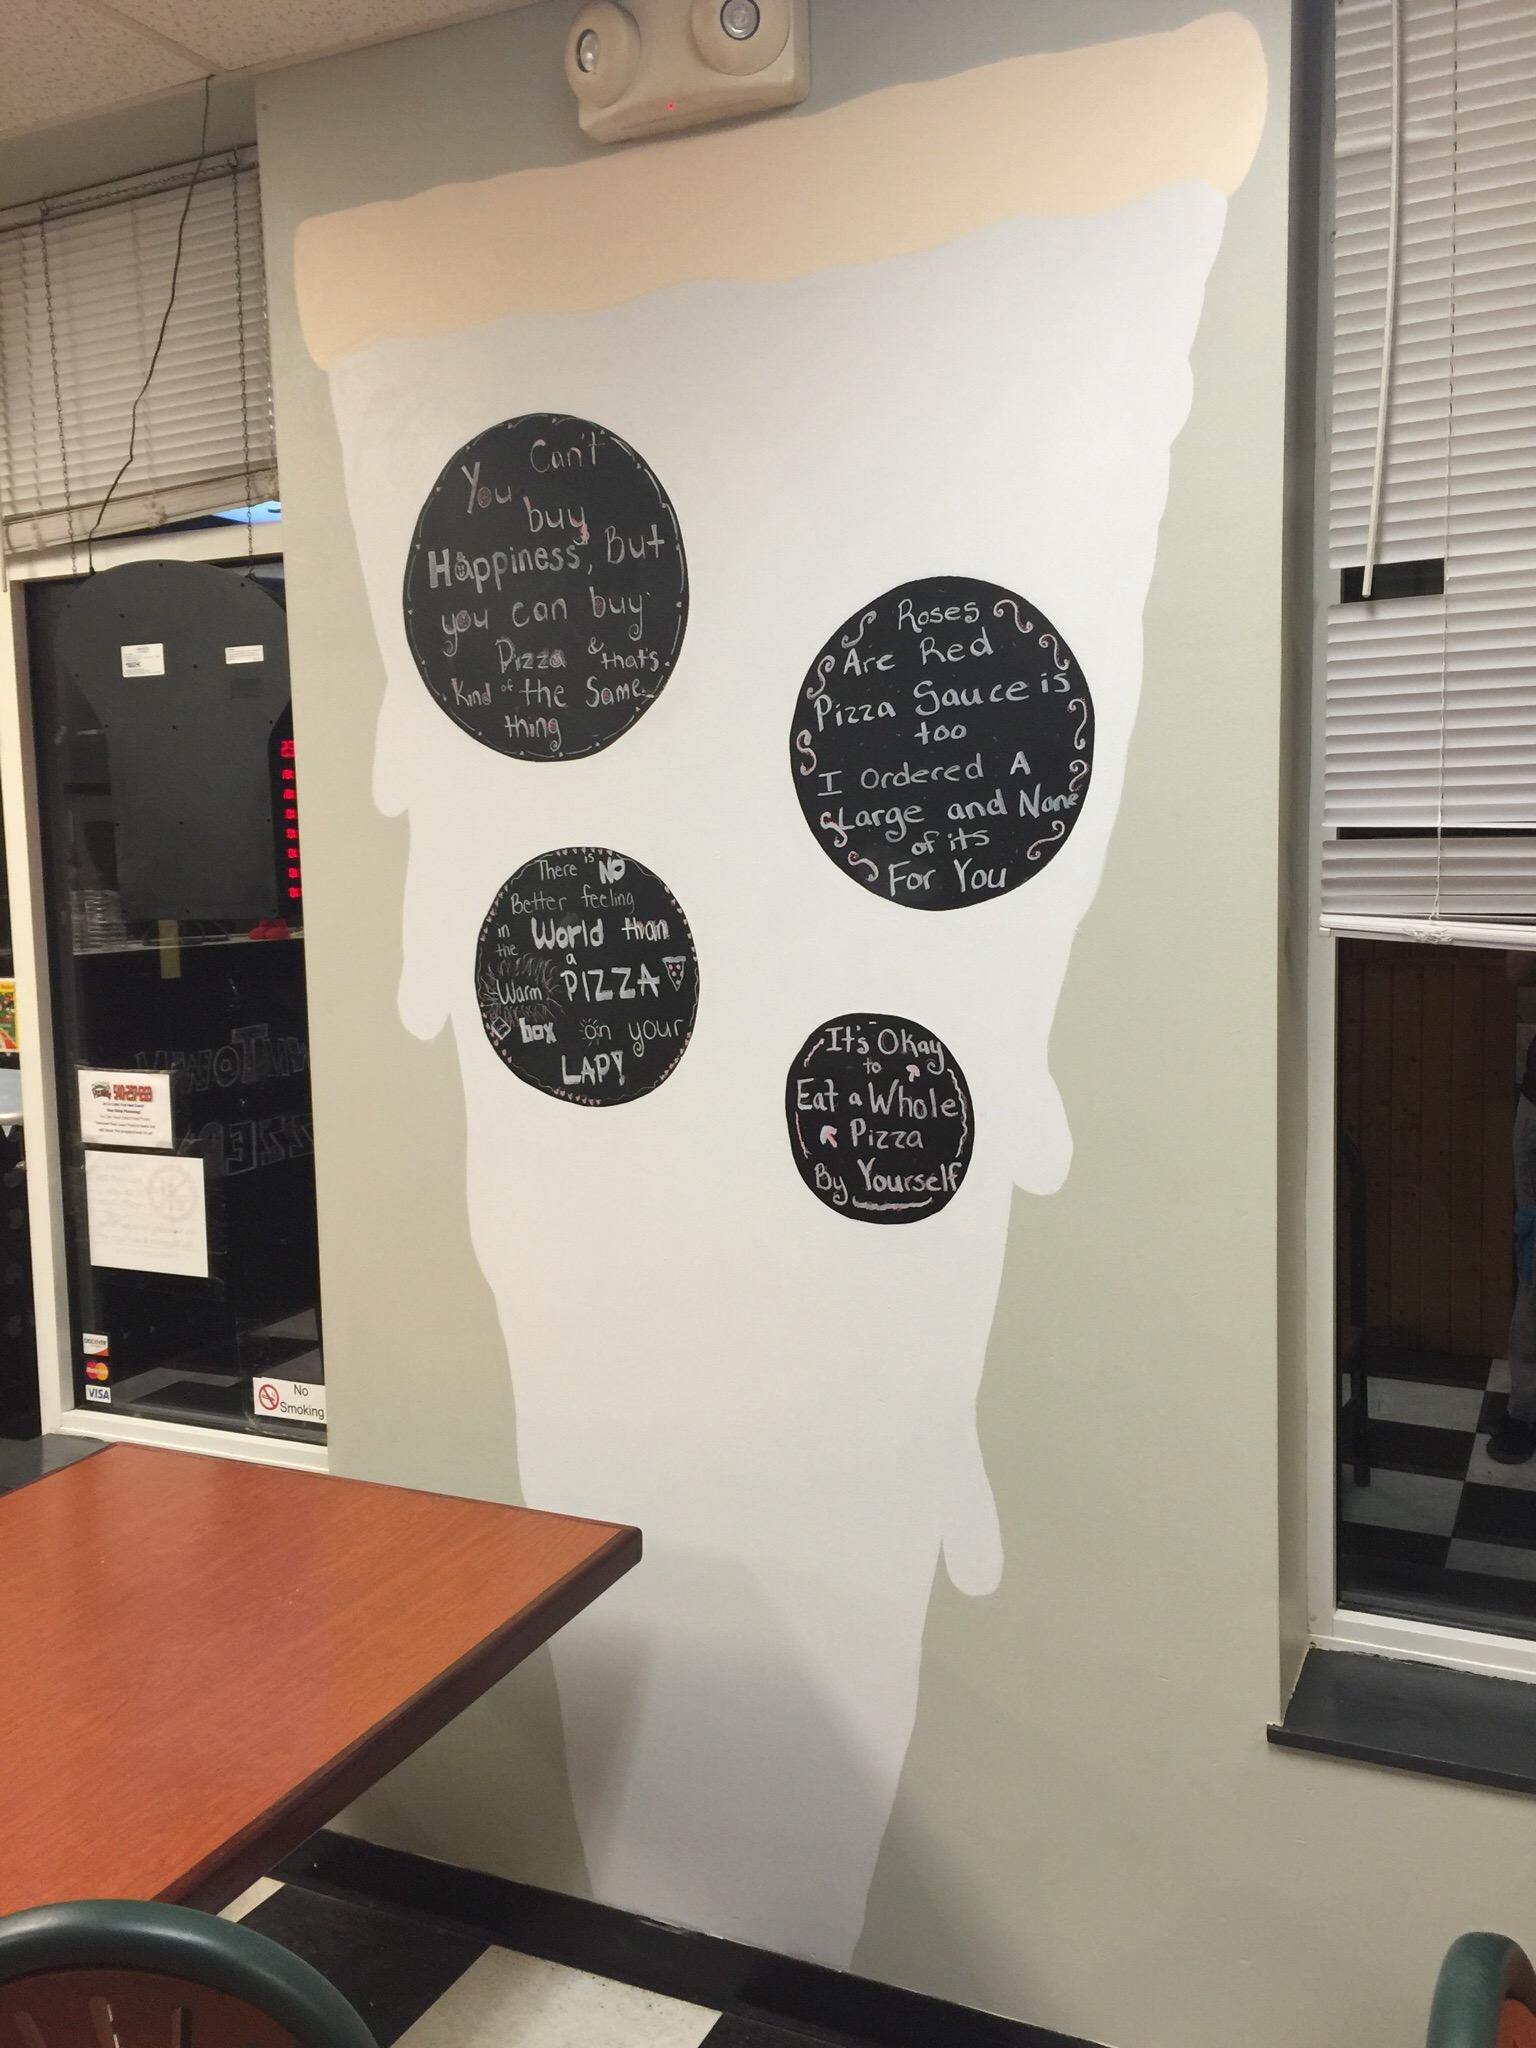 You Can't
buy
Happiness, But
you can buy
Pizza & that's
Kind of the Same
thing
Roses
Are Red
Pizza Sauce is
too
I Ordered A
Large and None
of its
For You
There is NO
Better feeling
in the World than
a
Warm PIZZA
box on your
LAP!
It's Okay
to
Eat a Whole
Pizza
By Yourself
DISCOVER
MasterCard
VISA
No
Smoking